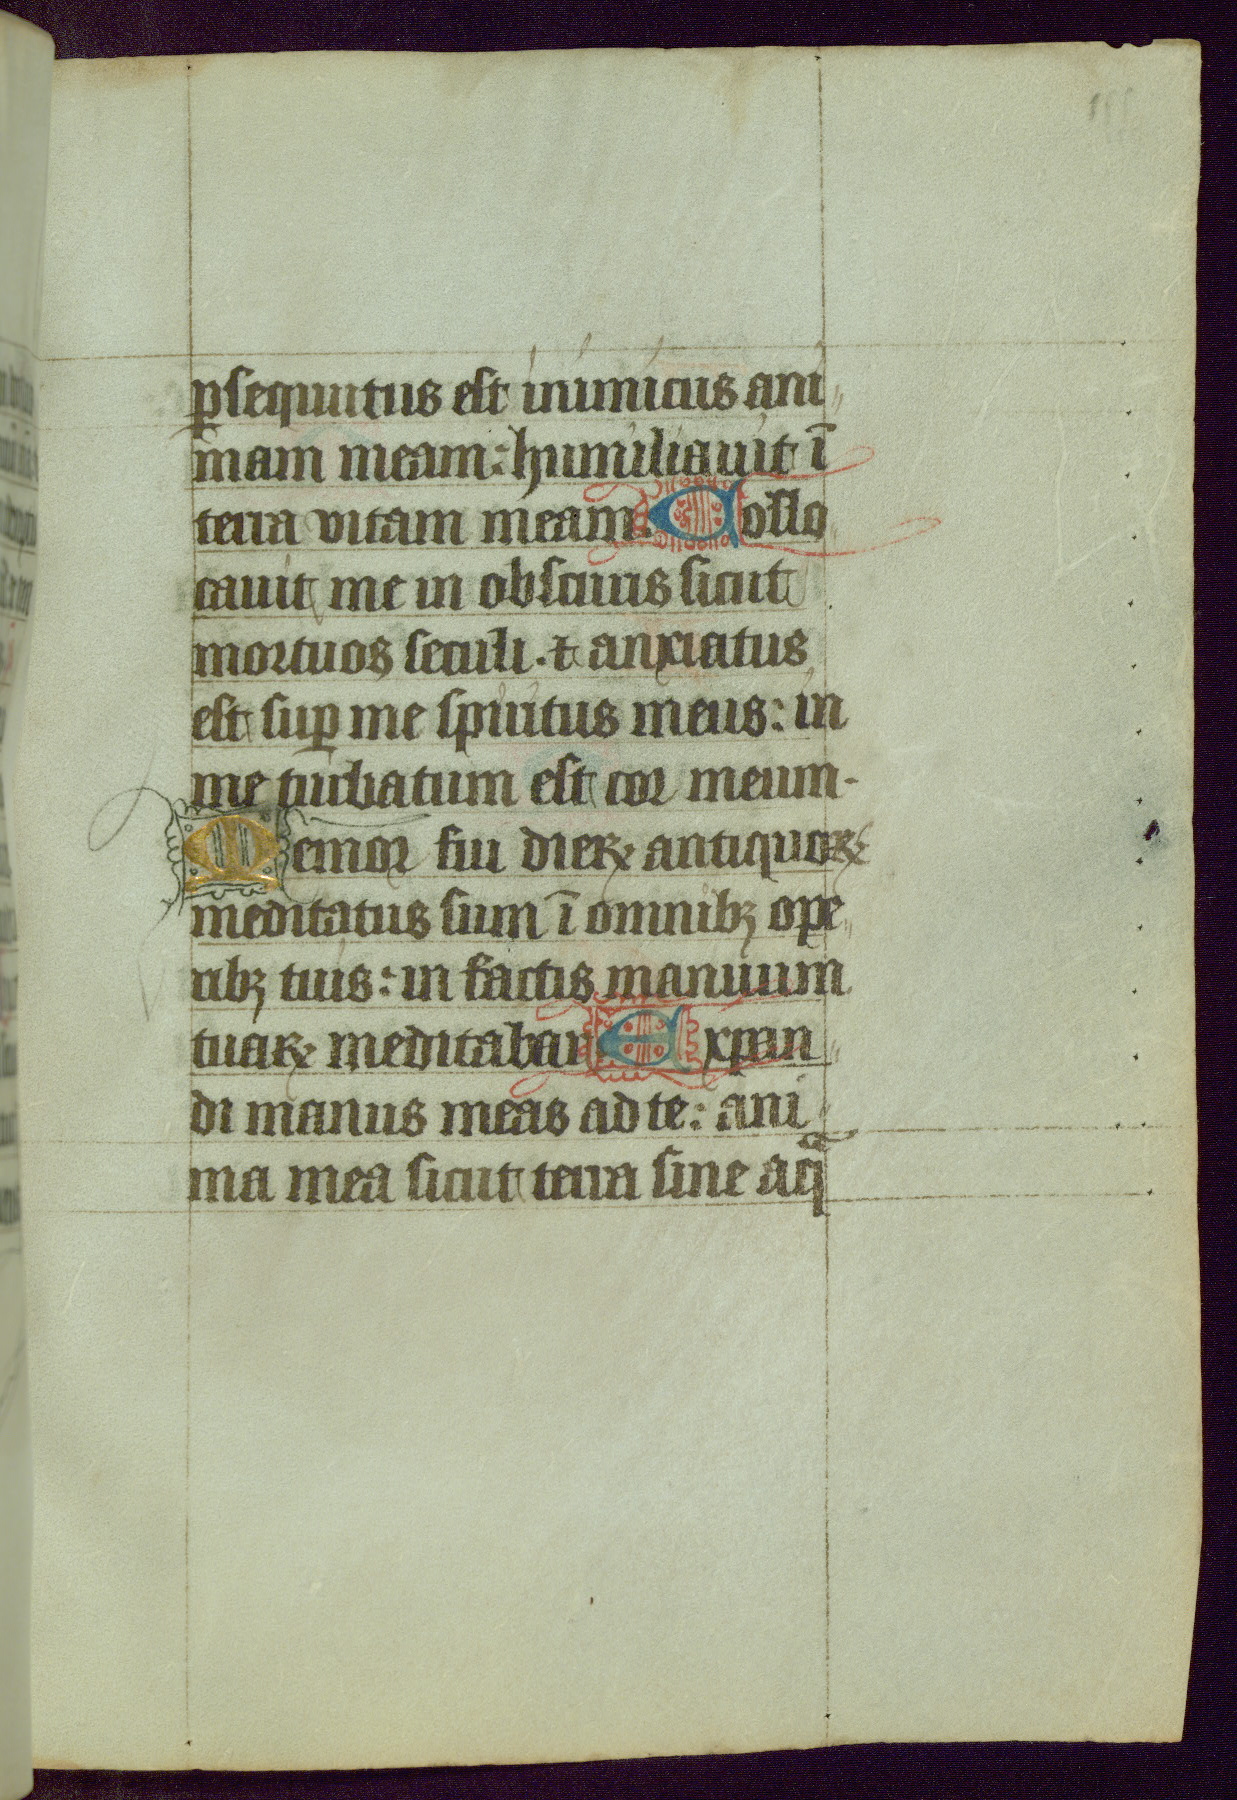 ꝑsequutus est inimicus ani
mam meam: humiliauit ī
terra vitam meam. Collo
cauit me in obscuris sicut
mortuos seculi. ⁊ anxiatus
est suꝑ me spiritus meus: in
me turbatum est cor meum.
Memor fui dieꝝ antiquoꝝ
meditatus sum ī omnibꝫ ope
ribꝫ tuis: in factis manuum
tuaꝝ meditabar. Expan
di manus meas ad te: ani
ma mea sicut terra sine aq̄